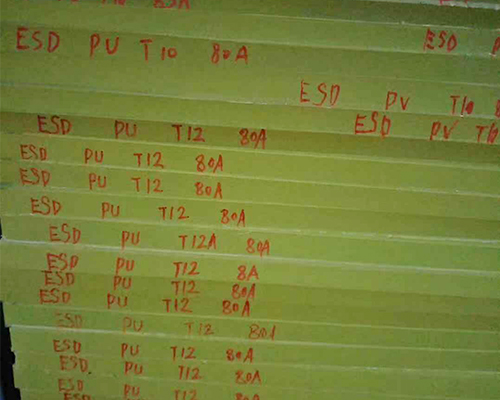 80A
ESD PU T10 80A ESD
ESD PV T10
ESD PU T12 80A ESD PV T10
ESD PU T12 80A
ESD PU T12 80A
ESD PU T12 80A
ESD PU T12A 80A
ESD PU T12 8A
ESD PU T12 80A
ESD PU T12 80A
ESD PU T12 80A
ESD PU T12 80A
ESD PU T12 80A
ESD PU T12 80A
ESD